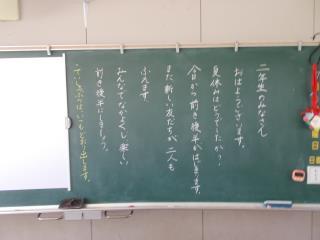 二年生のみなさん
おはようございます。
夏休みはどうでしたか？
今日から前き後半がはじまります。
また、新しい友だちが二人も
ふえます。
みんなでなかよくし、楽しい
前き後半にしましょう。
ていしゅつぶつはいつもどおり出します。